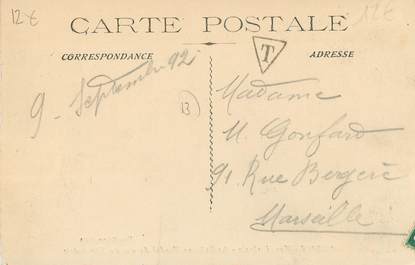 12€
12€
CARTE POSTALE
T
CORRESPONDANCE
ADRESSE
9 - Septembre 92
13
Madame
M. Gonfard
91 Rue Bergère
Marseille